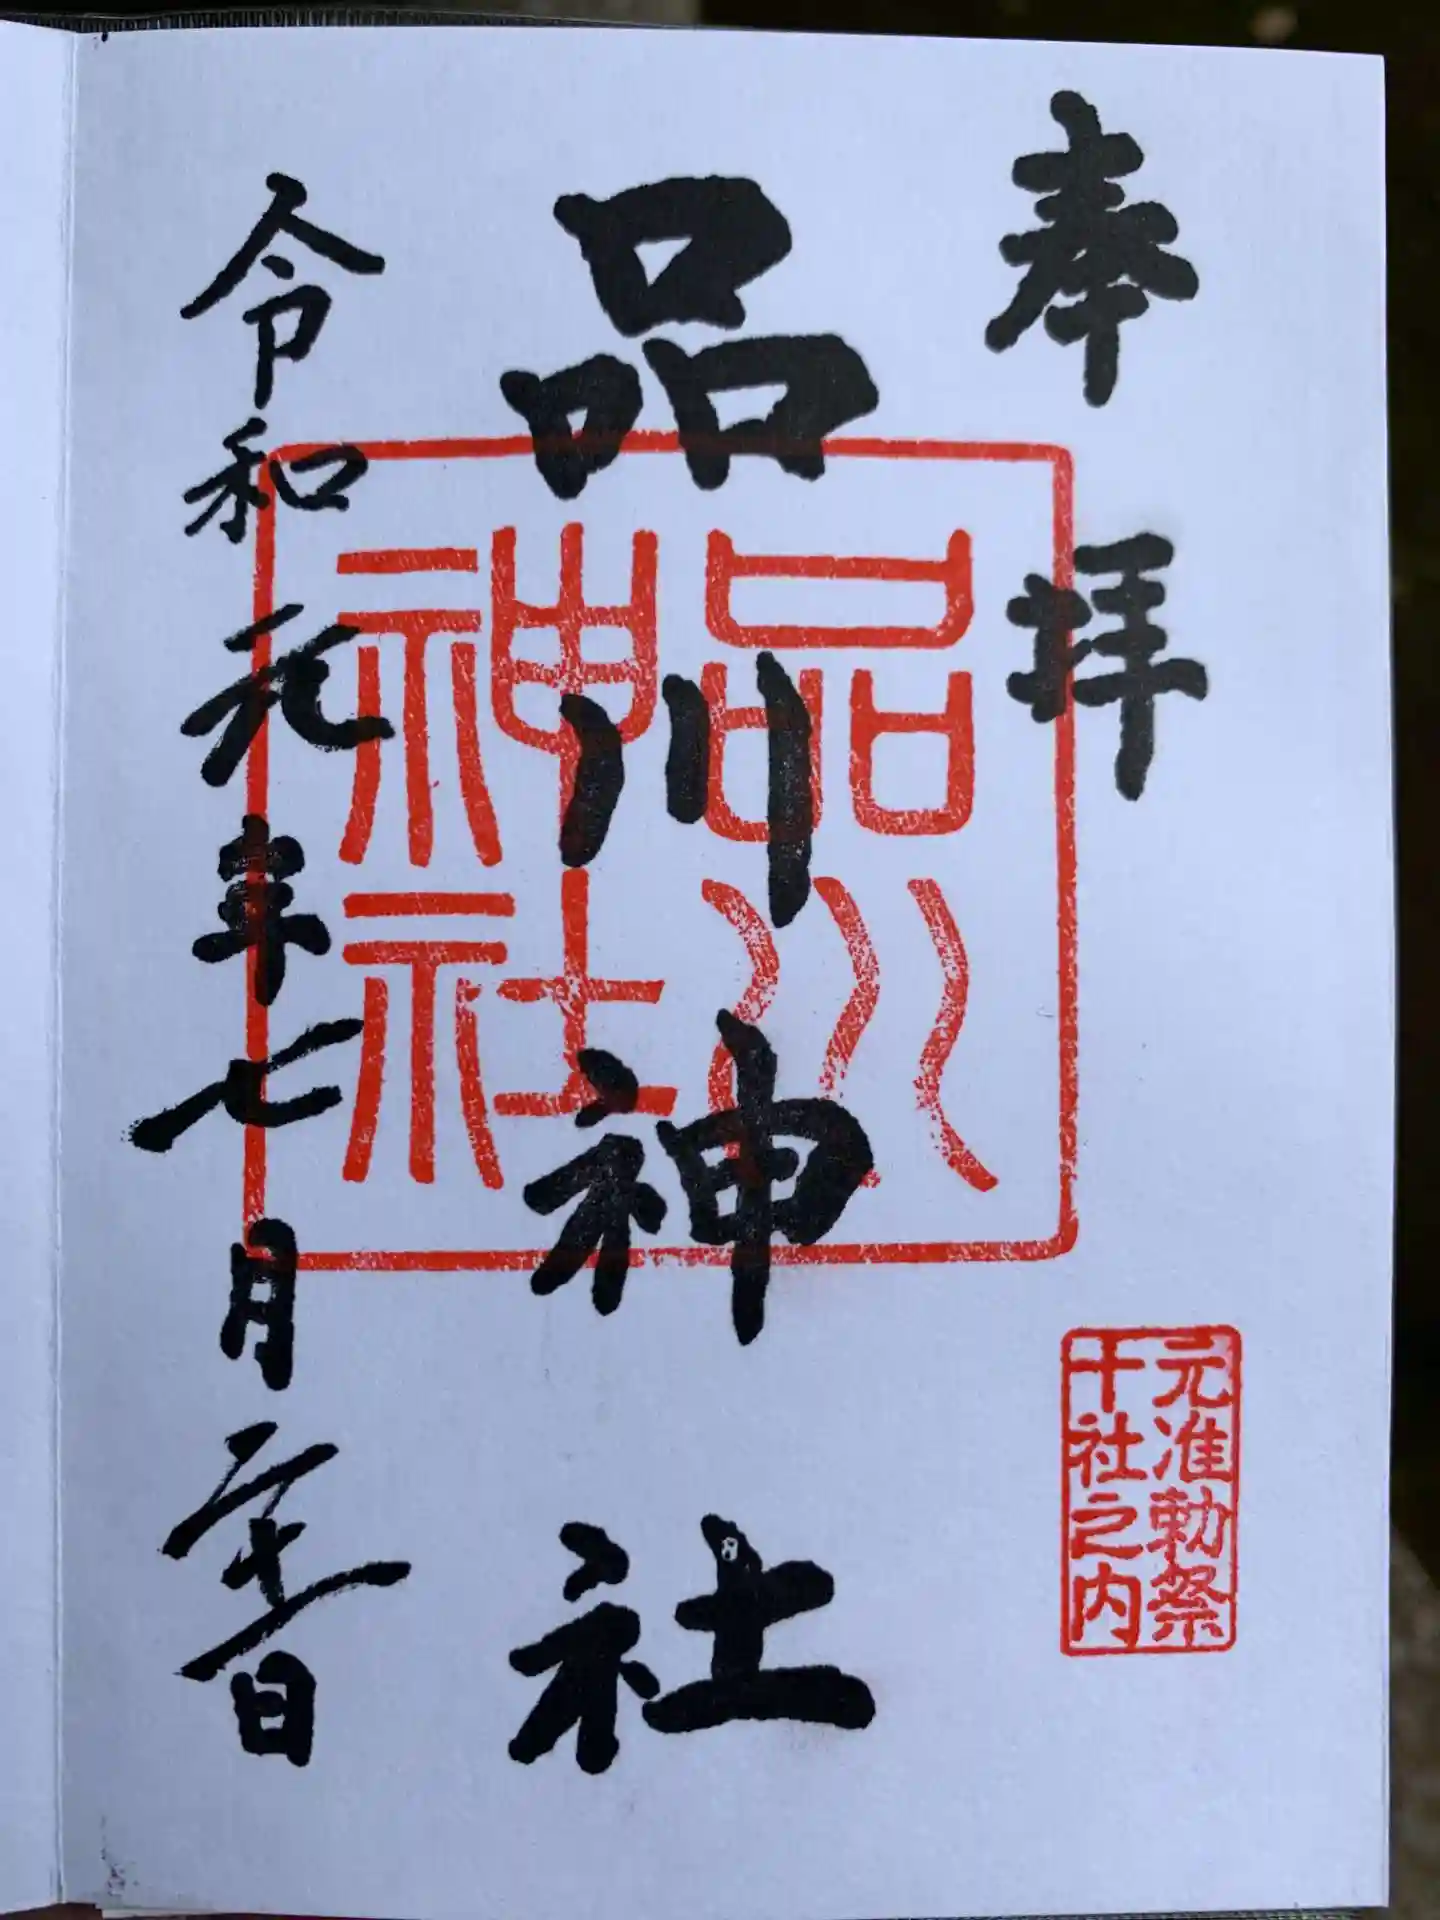 奉拝
元准勅祭
十社之内
品川神社
品川
神社
令和元年七月二十日